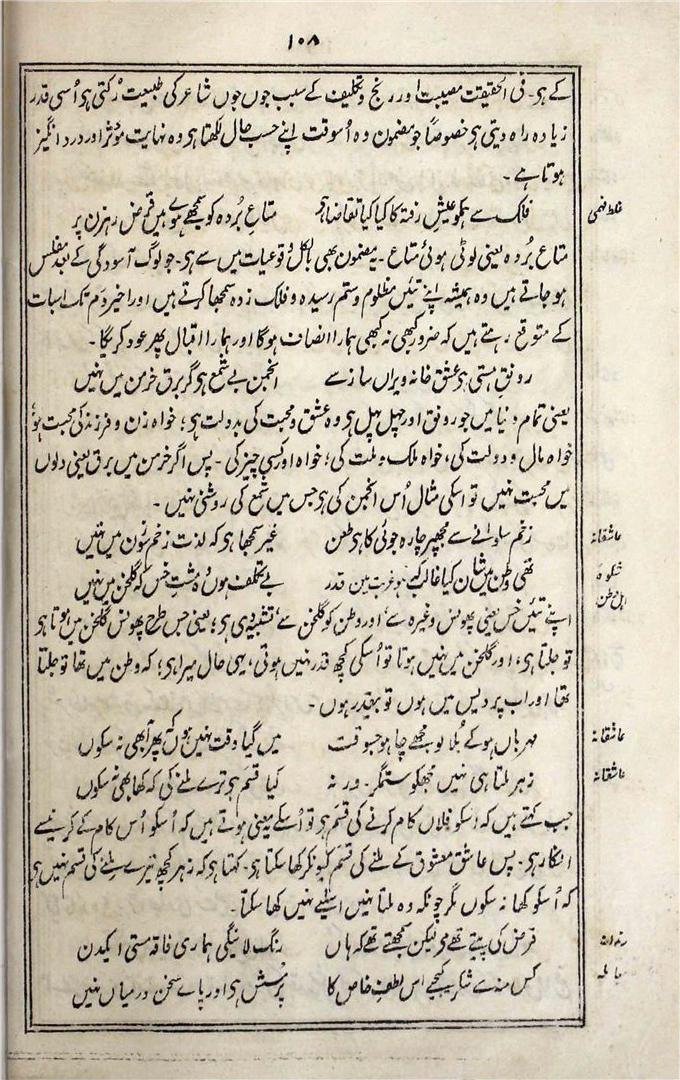 ۱۰۸
کے ہی۔ فی الحقیقت مصیبت اور رنج و تکلیف کے سبب جوں جوں شاعر کی طبیعت رُکتی ہی اُسی قدر
زیادہ راہ دیتی ہی خصوصاً جو مضمون وہ اُسوقت اپنے حسب حال لکھتا ہی وہ نہایت مؤثر اور درد انگیز
ہوتا ہے۔
غلط فہمی فلک سے ہمکو عیشِ رفتہ کا کیا کیا تقاضا ہی متاعِ بُردہ کو سمجھے ہوئے ہیں قرض رہزن پر
متاع بُردہ یعنی لوٹی ہوئی متاع۔ یہ مضمون بھی بالکل وُقوعیات میں سے ہی۔ جو لوگ آسودگی کے بعد مفلس
ہو جاتے ہیں وہ ہمیشہ اپنے تئیں مظلوم و ستم رسیدہ و فلک زدہ سمجھا کرتے ہیں اور اخیر دَم تک اس بات
کے متوقع رہتے ہیں کہ ضرور کبھی نہ کبھی ہمارا انصاف ہوگا اور ہمارا اقبال پھر عود کریگا۔
رونقِ ہستی ہی عشق خانہ ویراں ساز سے انجمن بے شمع ہی گر برق خرمن میں نہیں
یعنی تمام دنیا میں جو رونق اور چہل پہل ہی وہ عشق و محبت کی بدولت ہی؛ خواہ زن و فرزند کی محبت ہو،
خواہ مال و دولت کی، خواہ ملک و ملت کی؛ خواہ اور کسی چیز کی۔ پس اگر خرمن میں برق یعنی دلوں
میں محبت نہیں تو اسکی مثال اُس انجمن کی ہی جس میں شمع کی روشنی نہیں۔
عاشقانہ زخم سلوانے سے مجھپر چارہ جوئی کا ہی طعن غیر سمجھا ہی کہ لذت زخمِ سوزن میں نہیں
شکوہ اہل وطن تھی وطن میں شان کیا غالب کہ ہو غربت میں قدر بے تکلف ہوں وہ مشتِ خس کہ گلخن میں نہیں
اپنے تئیں خس یعنی پھونس وغیرہ سے اور وطن کو گلخن سے تشبیہ دی ہی؛ یعنی جس طرح پھونس گلخن میں ہوتا ہی
تو جلتا ہی، اور گلخن میں نہیں ہوتا تو اُسکی کچھ قدر نہیں ہوتی، یہی حال میرا ہی؛ کہ وطن میں تھا تو جلتا
تھا اور اب پردیس میں ہوں تو بیقدر ہوں۔
عاشقانہ مہرباں ہو کے بُلا لو مجھے چاہو جسوقت میں گیا وقت نہیں ہوں کہ پھر آ بھی نہ سکوں
عاشقانہ زہر ملتا ہی نہیں مجھکو ستمگر۔ ورنہ کیا قسم ہی ترے ملنے کی کہ کھا بھی نہ سکوں
جب کہتے ہیں کہ اسکو فلاں کام کرنے کی قسم ہی تو اُسکے یہ معنی ہوتے ہیں کہ اُسکو اُس کام کے کرنیسے
انکار ہی۔ پس عاشق معشوق کے ملنے کی قسم کیونکر کھا سکتا ہی۔ کہتا ہی کہ زہر کچھ تیرے ملنے کی قسم نہیں ہی
کہ اُسکو کھا نہ سکوں مگر چونکہ وہ ملتا نہیں اسلیے نہیں کھا سکتا۔
رندانہ قرض کی پیتے تھے مے لیکن سمجھتے تھے کہ ہاں رنگ لائیگی ہماری فاقہ مستی ایکدن
کس منہ سے شکر کیجیے اس لطفِ خاص کا پرسش ہی اور پاے سخن درمیاں نہیں